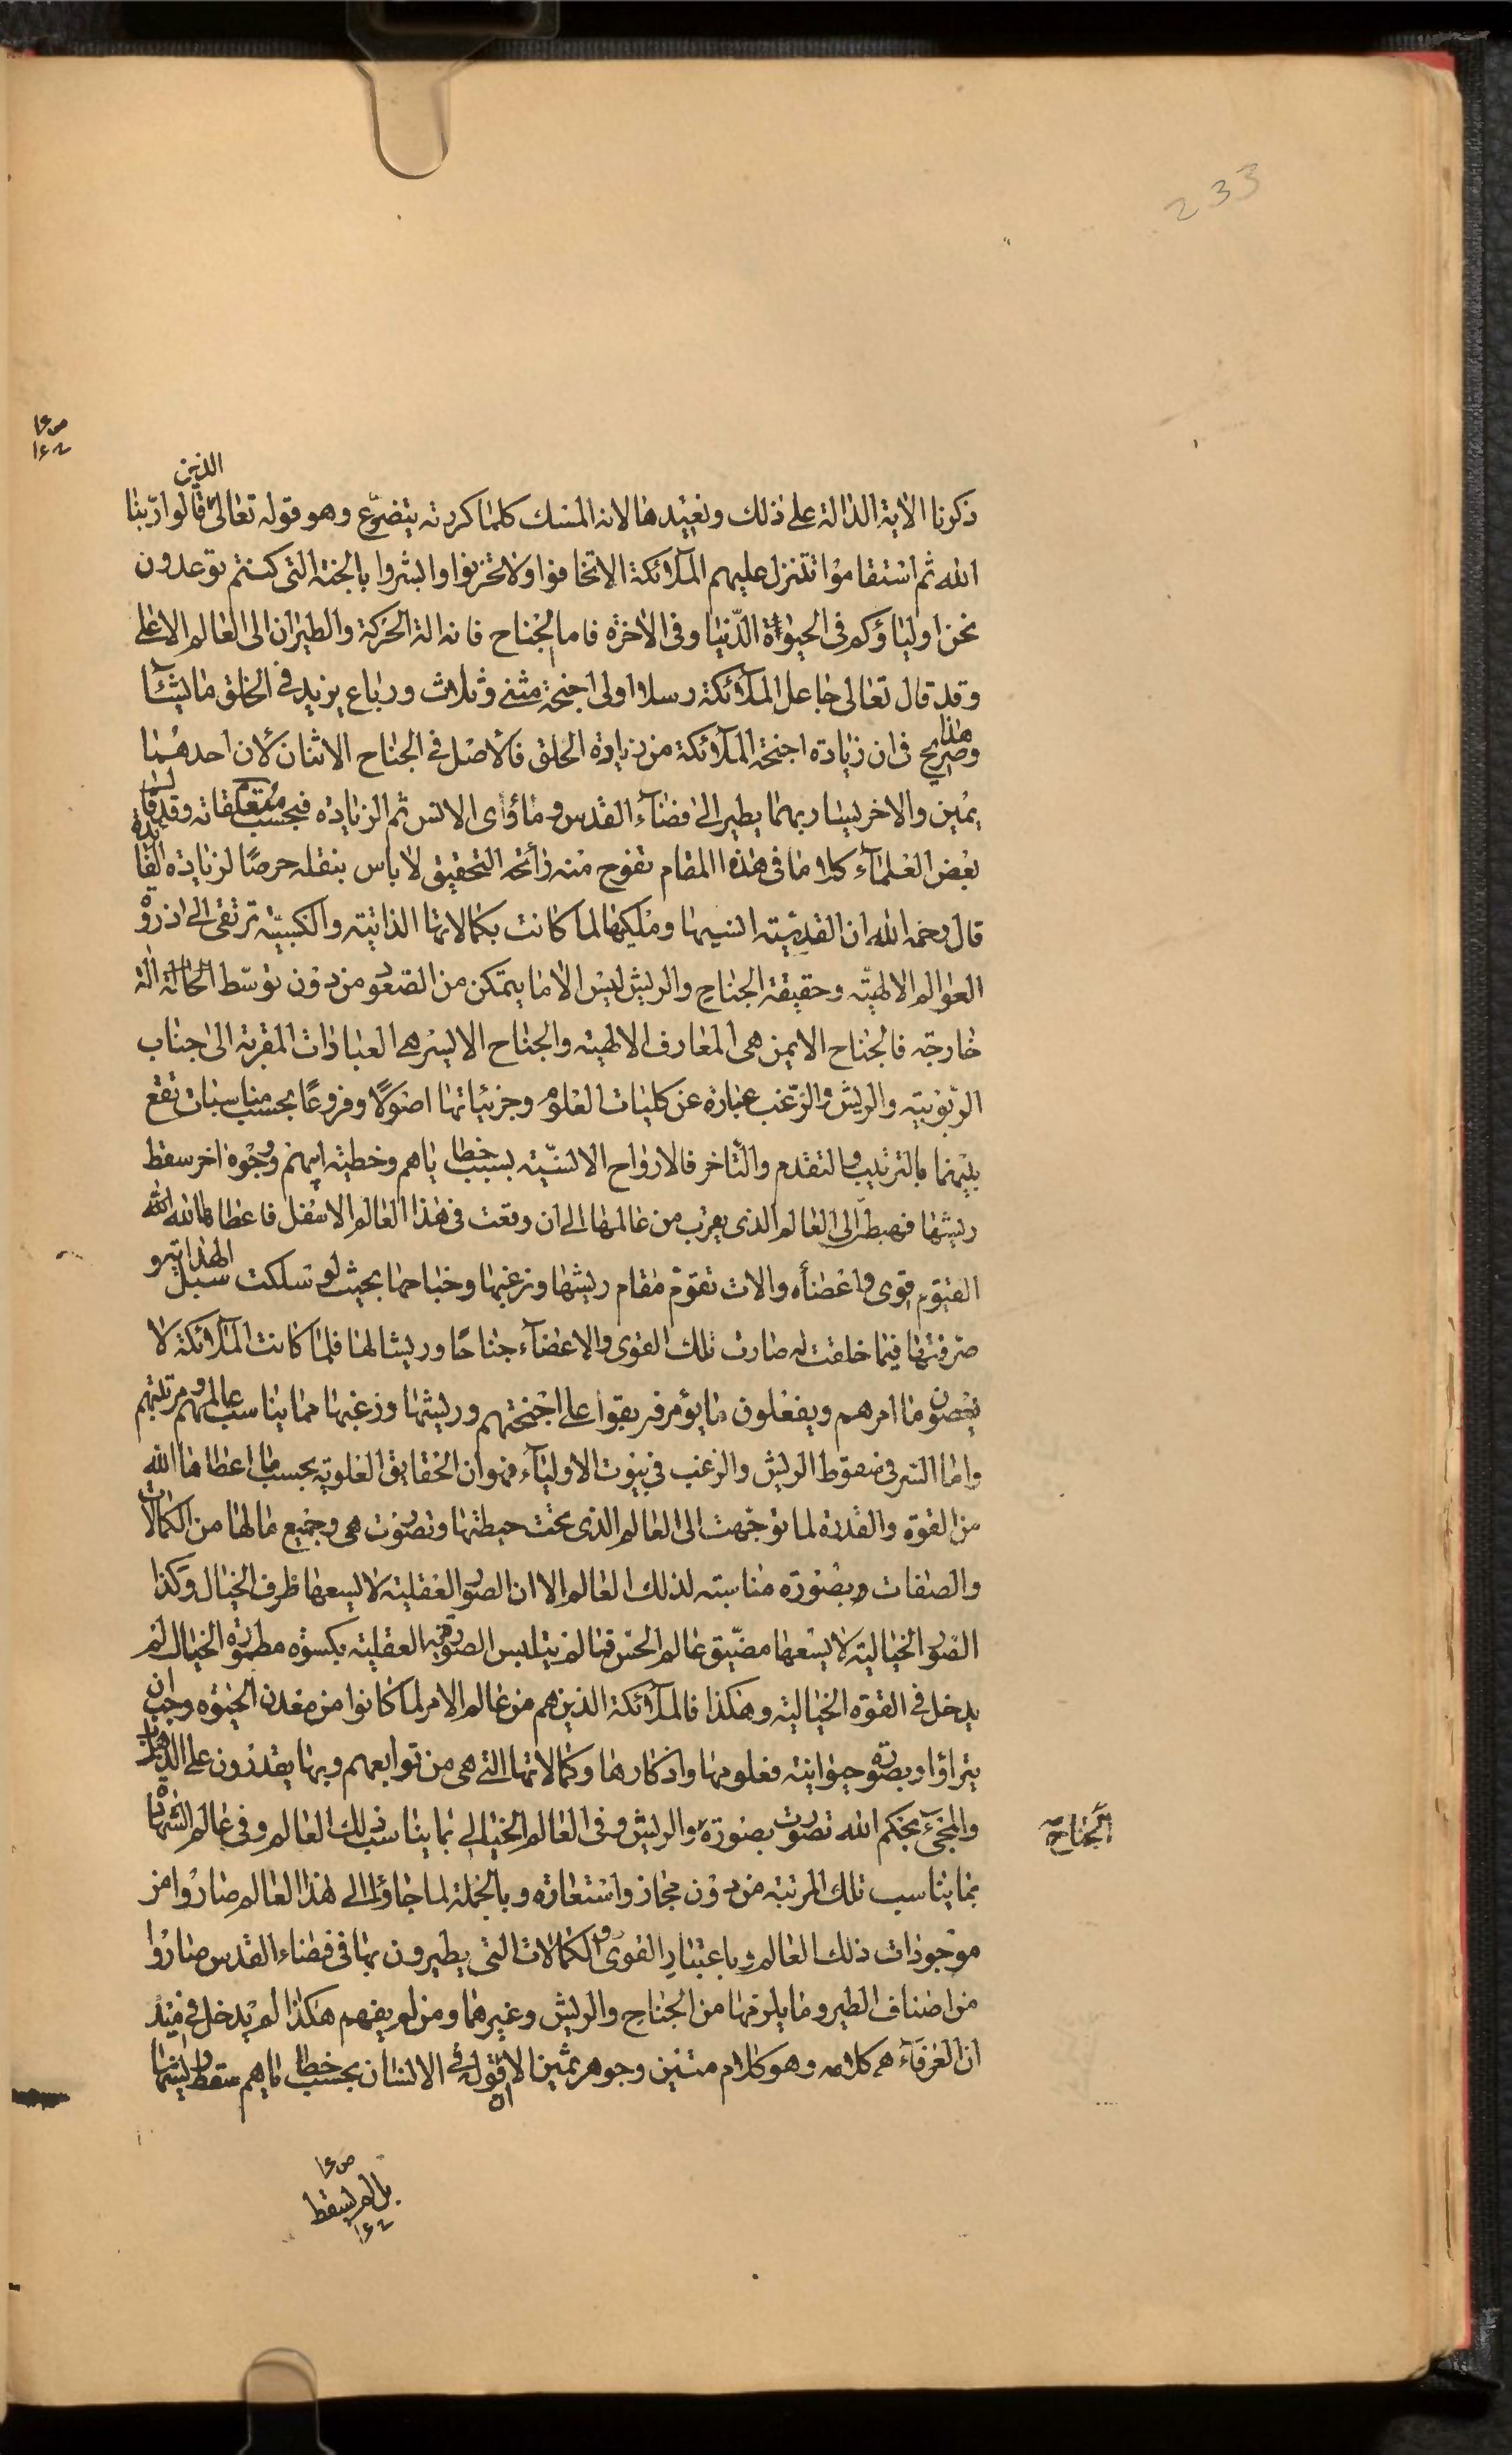 233
ص ١٤
١٤٢
الذين
ذكرنا الاية الدالة على ذلك ونعيدها لانه المسك كلما كررته يتضوع وهو قوله تعالى قالوا ربنا
الله ثم استقاموا تتنزل عليهم الملائكة الا تخافوا ولا تحزنوا وابشروا بالجنة التى كنتم توعدون
نحن اولياؤكم فى الحيوة الدنيا وفى الاخرة فاما الجناح فانه الة الحركة والطيران الى العالم الاعلى
وقد قال تعالى جاعل الملائكة رسلا اولى اجنحة مثنى وثلاث ورباع يزيد فى الخلق ما يشآء
وهذا صريح فى ان زيادة اجنحة الملائكة من زيادة الخلق فالاصل فى الجناح الاثنان لان احدهما
يمين والاخر يسار بهما يطير الى فضآء القدس وماؤى الانس ثم الزيادة فبحسب متعلقاته وقد قال
بعض العلمآء كلاما فى هذا المقام تفوح منه رائحة التحقيق لا باس بنقله حرصا لزيادة الفايدة
قال رحمه الله ان القدسية انسيها وملكيها لما كانت بكمالاتها الذاتية والكسبية ترتقى الى ذروة
العوالم الالهية وحقيقة الجناح والريش ليس الا ما يتمكن من الصعود من دون توسط الة
خارجة فالجناح الايمن هى المعارف الالهية والجناح الايسر هى العبادات المقربة الى جناب
الربوبية والريش والزغب عبارة عن كليات العلوم وجزئياتها اصولا وفروعا بحسب مناسبات تقع
بينهما بالترتيب والتقدم والتاخر فالارواح الانسية بسبب خطاياهم وخطيئة ابيهم ووجوه اخر سقط
ريشها فهبط الى العالم الذى يقرب من عالمها الى ان وقعت فى هذا العالم الاسفل فاعطاها الله
القيوم قوى واعضآء والات تقوم مقام ريشها وزغبها وجناحها بحيث لو سلكت سبل الهداية و
صرفتها فيما خلقت له صارت تلك القوى والاعضآء جناحا وريشا لها فلما كانت الملائكة لا
يعصون ما امرهم ويفعلون ما يؤمرون بقوا على اجنحتهم وريشها وزغبها مما يناسب عالمهم ومرتبتهم
واما السر فى سقوط الريش والزغب فى بيوت الاوليآء فهو ان الحقايق العلوية بحسب ما اعطاها الله
من القوة والقدرة لما توجهت الى العالم الذى تحت حيطتها وتصورت هى وجميع ما لها من الكمالات
والصفات وبصورة مناسبة لذلك العالم الا ان الصور العقلية لا يسعها ظرف الخيال وكذا
الصور الخيالية لا يسعها مضيق عالم الحس فما لم يتلبس الصور العقلية بكسوة الخيال لم
يدخل فى القوة الخيالية وهكذا فالملائكة الذين هم من عالم الامر لما كانوا من معدن الحيوة وجب ان
يتراؤا وبصورة حيوانية فعلومها واذكارها وكمالاتها التى هى من توابعهم وبها يقدرون على الذهاب
والمجىء بحكم الله تصورت بصورة والريش وفى العالم الخيالى بما يناسب ذلك العالم وفى عالم الشهادة
الجناح
بما يناسب تلك المرتبة من دون مجاز واستعارة وبالجملة لما جاؤا الى هذا العالم صاروا من
موجودات ذلك العالم وباعتبار القوى والكمالات التى يطيرون بها فى فضاء القدس صاروا
من اصناف الطير وما يلزمها من الجناح والريش وغيرهما ومن لم يفهم هكذا لم يدخل فى
ان العرفآء كلامه وهو كلام متين وجوهر ثمين الا ان قوله فى الانسان بحسب خطاياهم سقط ريشها
ص ١٤
بل لم يسقط
١٤٢